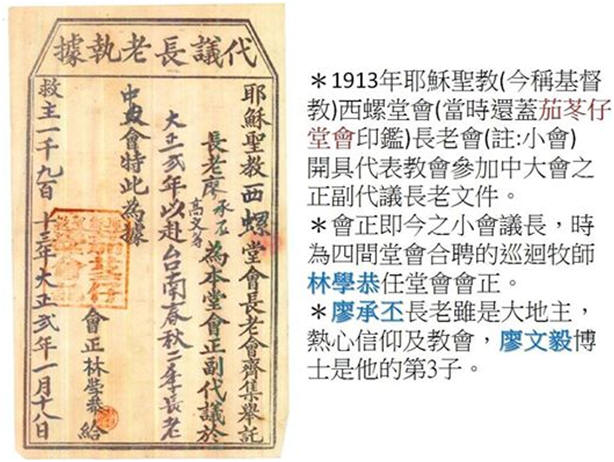 代議長老執據
耶穌聖教西螺堂會長老會齊集舉託
長老廖承丕高文為本堂會正副代議於
大正弍年以赴台南春秋二季長老
中大會特此為據
會正林學恭給
救主一千九百十三年大正弍年一月十八日
＊1913年耶穌聖教(今稱基督
教)西螺堂會(當時還蓋茄苳仔
堂會印鑑)長老會(註:小會)
開具代表教會參加中大會之
正副代議長老文件。
＊會正即今之小會議長，時
為四間堂會合聘的巡迴牧師
林學恭任堂會會正。
＊廖承丕長老雖是大地主，
熱心信仰及教會，廖文毅博
士是他的第3子。